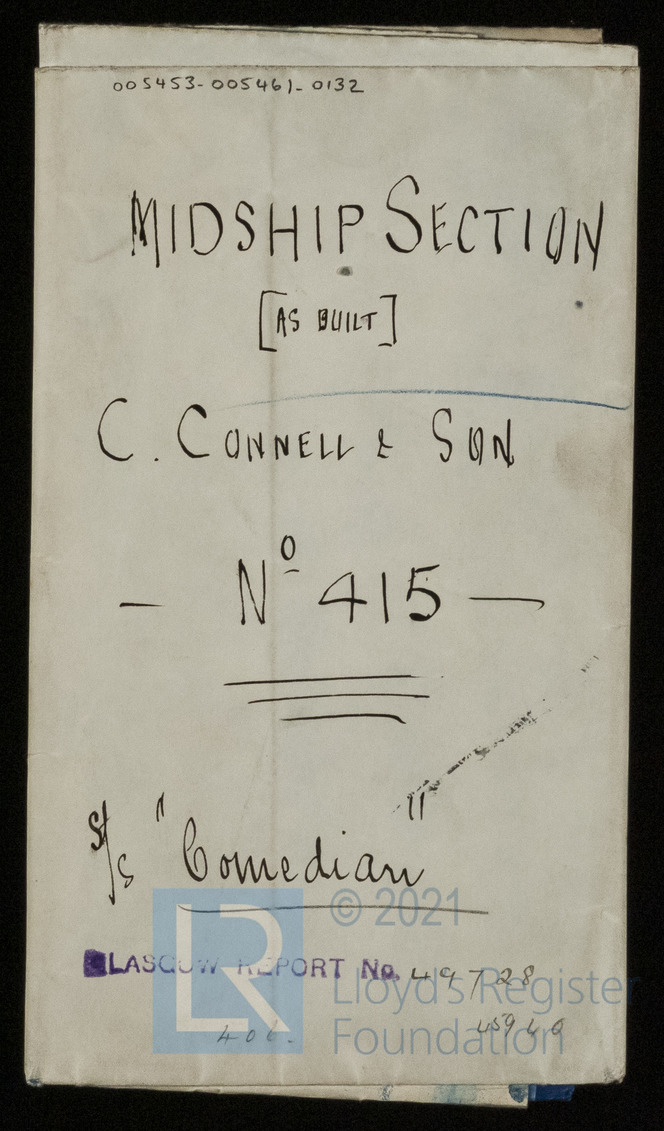 005453-005461-0132
MIDSHIP SECTION
[AS BUILT]
C. CONNELL & SON
- Nº 415 -
S/S "Comedian"
© 2021
GLASGOW REPORT No. 49728
Lloyd's Register
Foundation
LR
406.